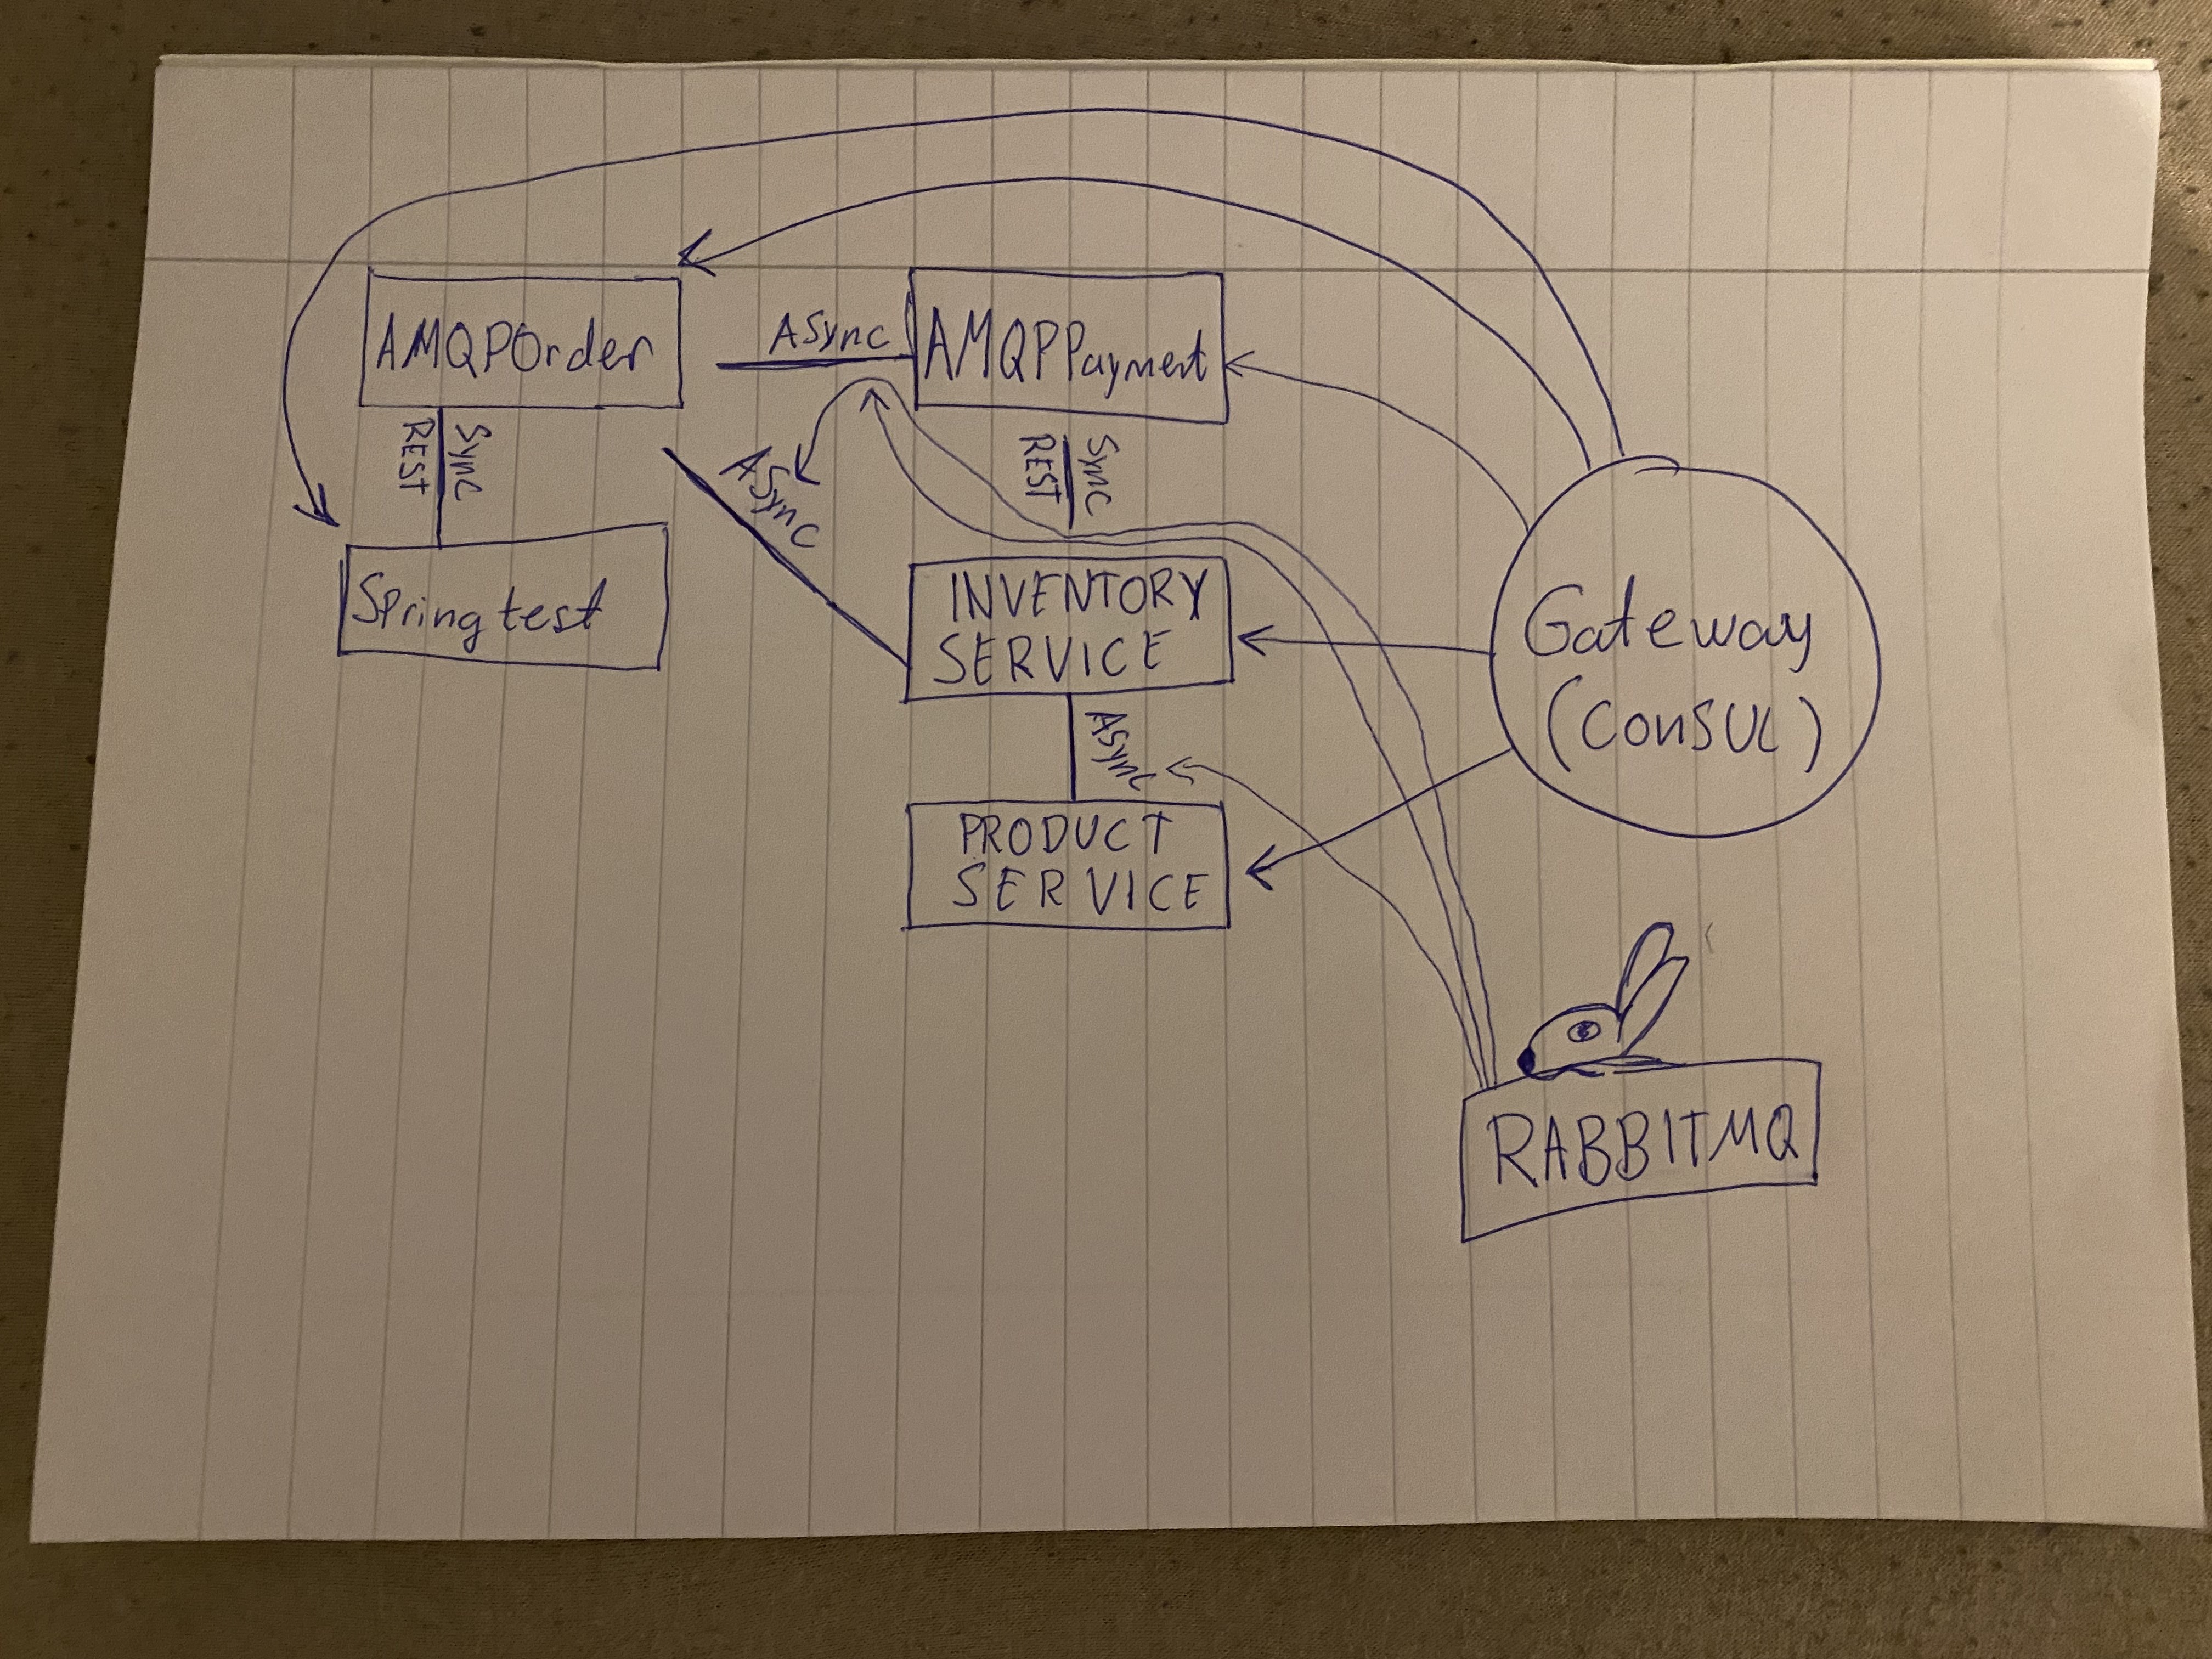 AMQPOrder
ASync
AMQPPayment
Sync
REST
ASync
Sync
REST
Springtest
INVENTORY
SERVICE
Gateway
(ConSUL)
ASync
PRODUCT
SERVICE
RABBITMQ